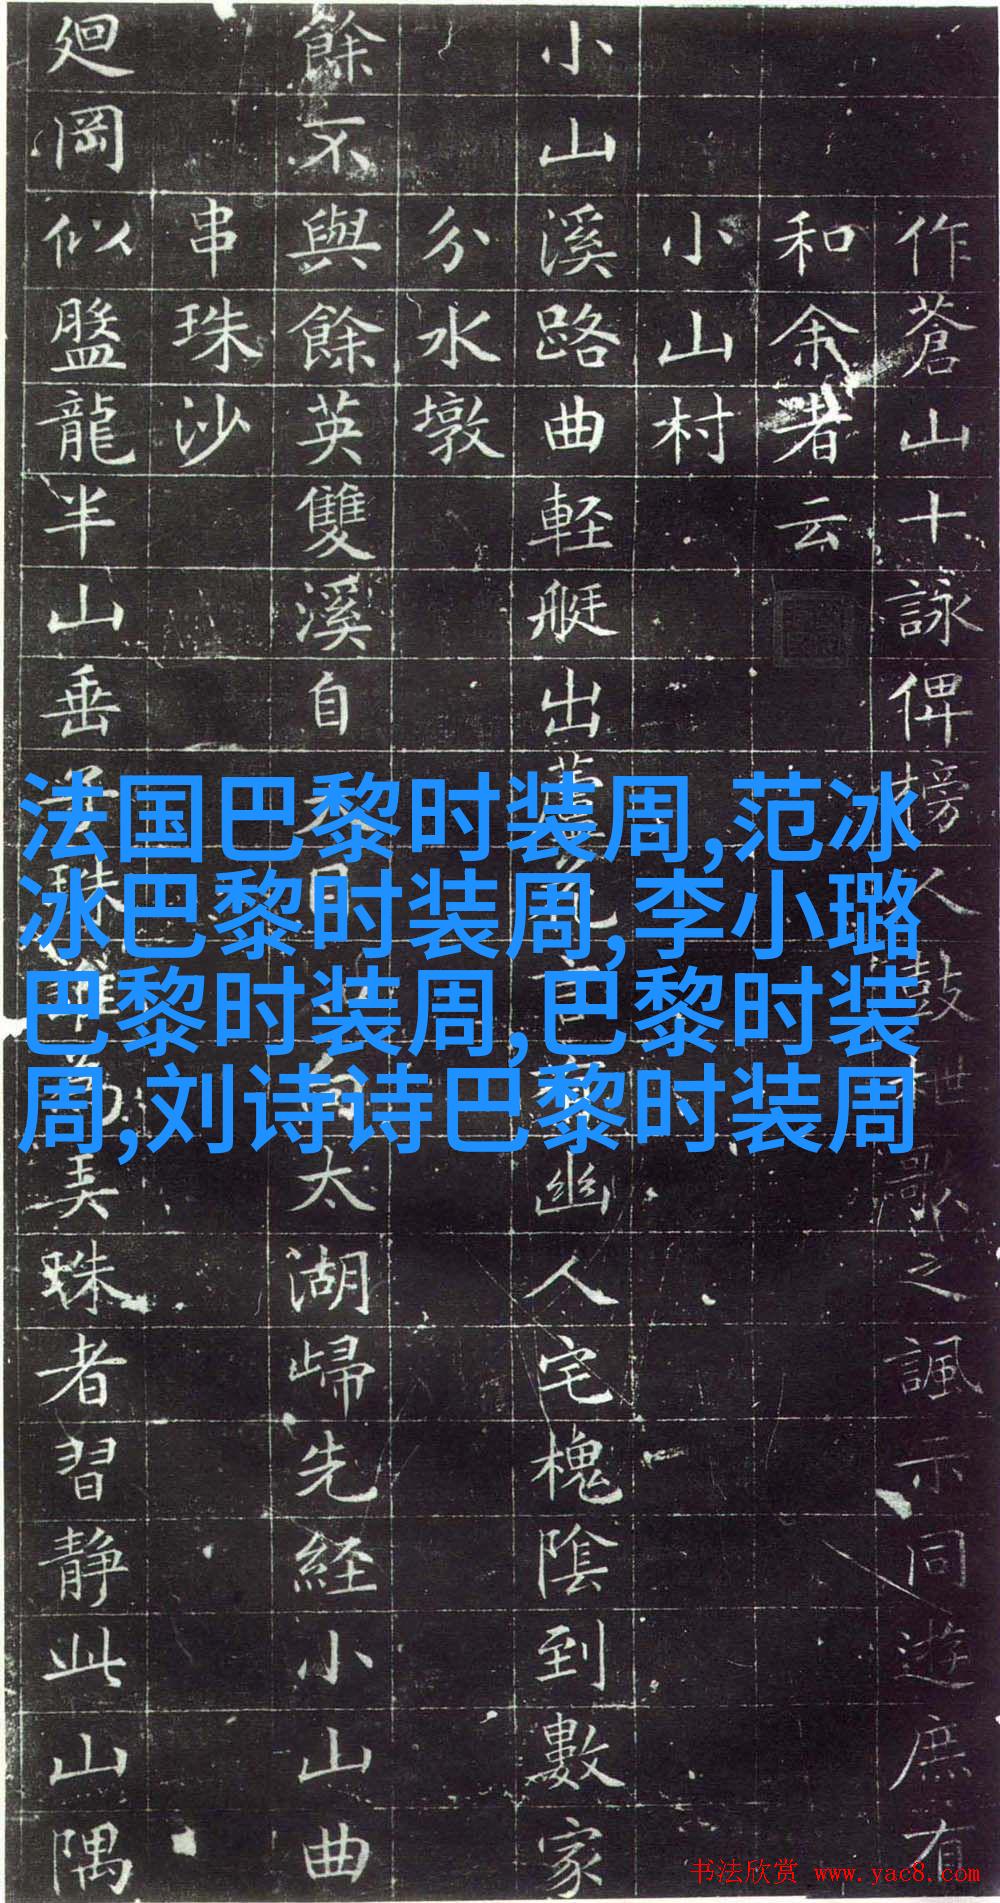 作蒼山十詠俾榜人鼓枻歌之諷示同遊庶有
和余者云
小山村
小山溪路曲軽艇出蘆花言幽人宅槐陰到數家
分水墩
餘不與餘英雙溪自太湖歸先経小山曲
串珠沙
廻岡似盤龍半山垂珠誰為弄珠者習靜此山隅
法国巴黎时装周,范冰
冰巴黎时装周,李小璐
巴黎时装周,巴黎时装
周,刘诗诗巴黎时装周
书法欣赏 www.yac8.com